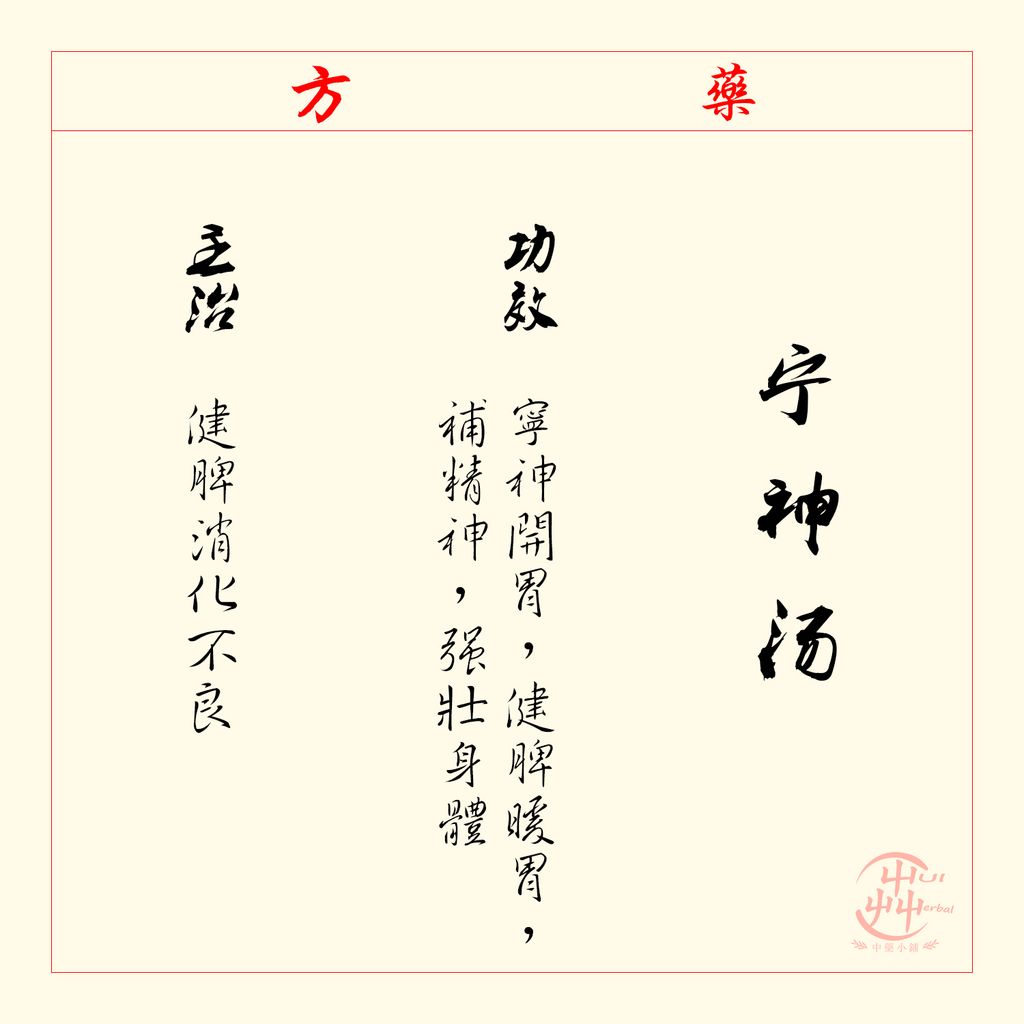 藥方
宁神汤
功效
寧神開胃，健脾暖胃，
補精神，强壯身體
主治
健脾消化不良
Hui
Herbal
中藥小鋪